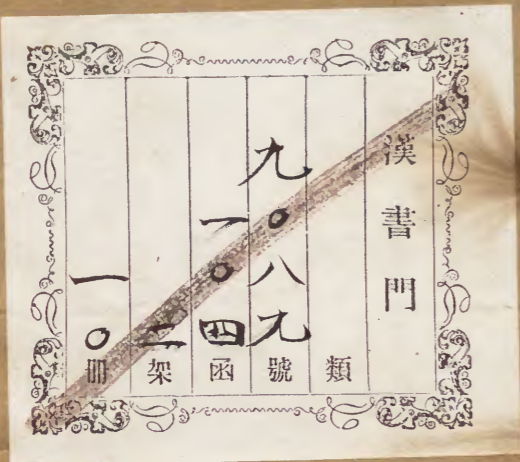 漢書門
類
九〇八九號
一〇四函
二架
一〇冊